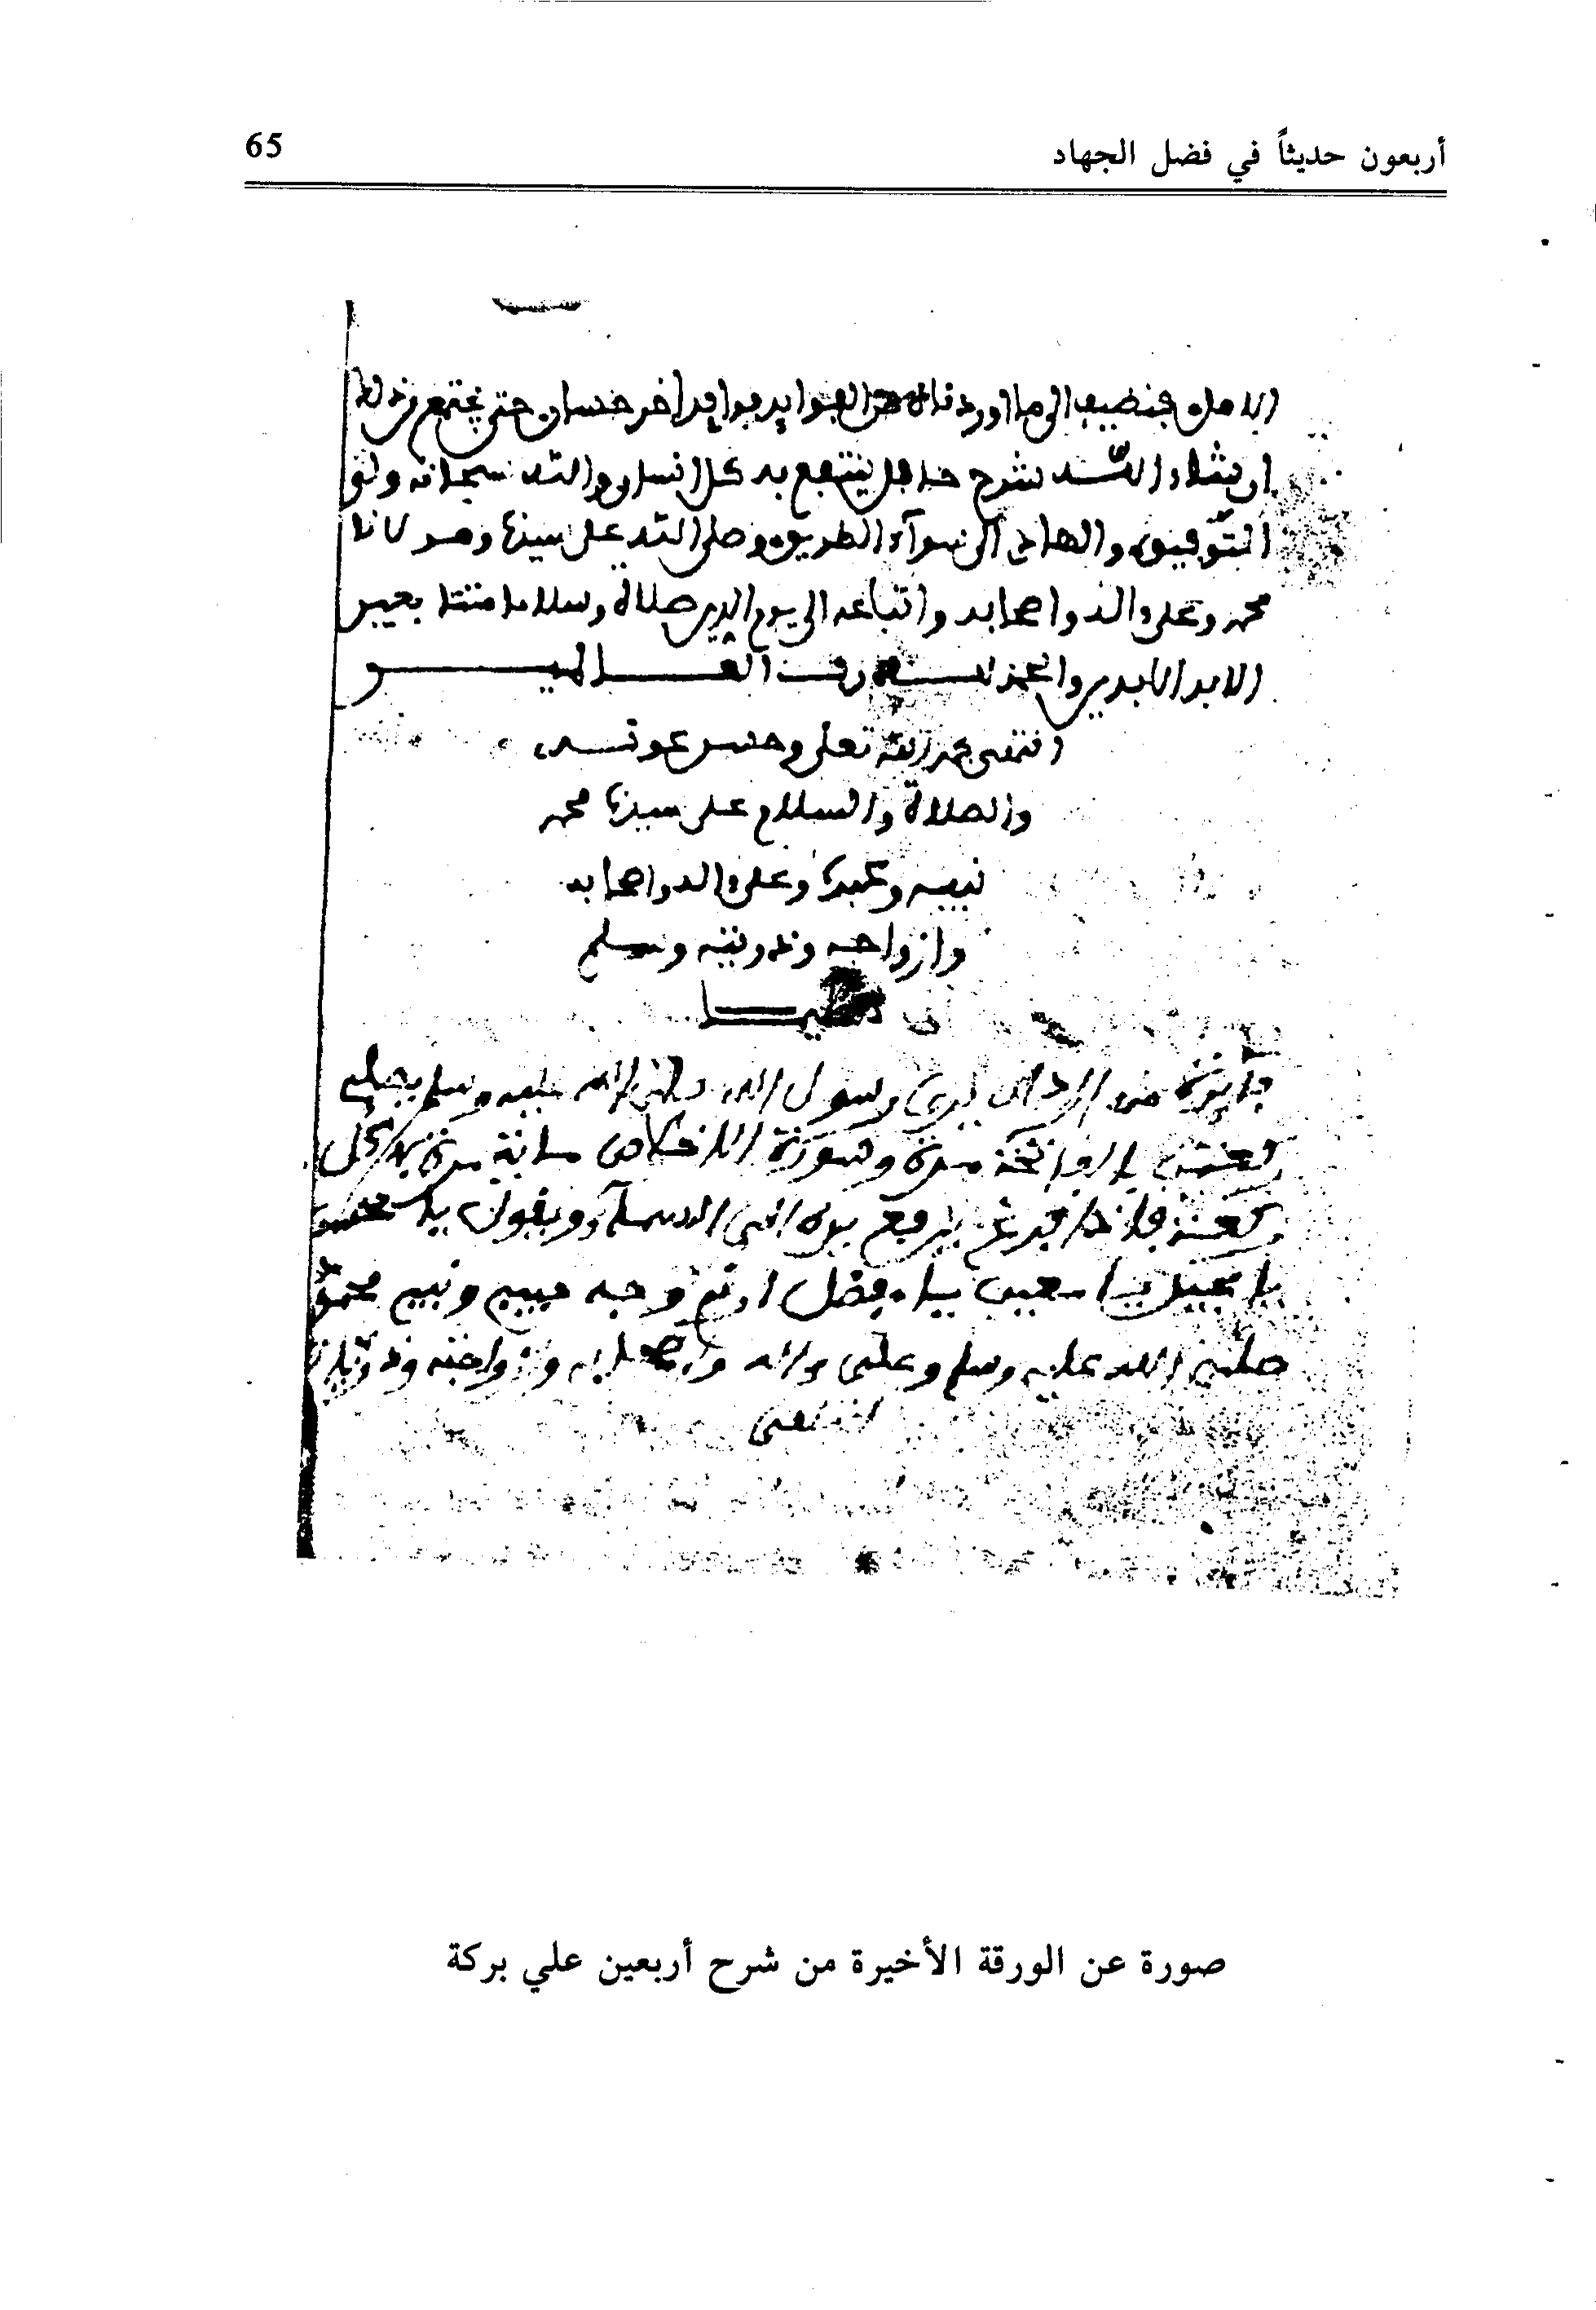 أربعون حديثاً في فضل الجهاد
65
الامل فنضيف الى ما اوردناه من الفوايد فوايد اخر حسان حتى يجتمع من ذلك
ان شاء الله شرح حافل ينتفع به كل انسان والله سبحانه ولي
التوفيق والهادي الى سوآء الطريق وصلى الله على سيدنا ومولانا
محمد وعلى ءاله واصحابه واتباعه الى يوم الدين صلاة وسلاما
الابد الابدين والحمد لله رب العالمين
انتهى بحمد الله تعلى وحسن عونه
والصلاة والسلام على سيدنا محمد
نبيه وعبده وعلى ءاله واصحابه
وازواجه وذريته وسلم
تسليما
فايدة من اراد ان يرى رسول الله صلى الله عليه وسلم يصلي
ركعتين بالفاتحة مرة وسورة الاخلاص ماية مرة في كل
ركعة فاذا فرغ يرفع يده الى السماء ويقول يا محسن
يا مجمل يا يا مفضل ارني وجه حبيبي ونبيي محمد
صلى الله عليه وسلم وعلى ءاله واصحابه وازواجه وذريته
انتهى
صورة عن الورقة الأخيرة من شرح أربعين علي بركة